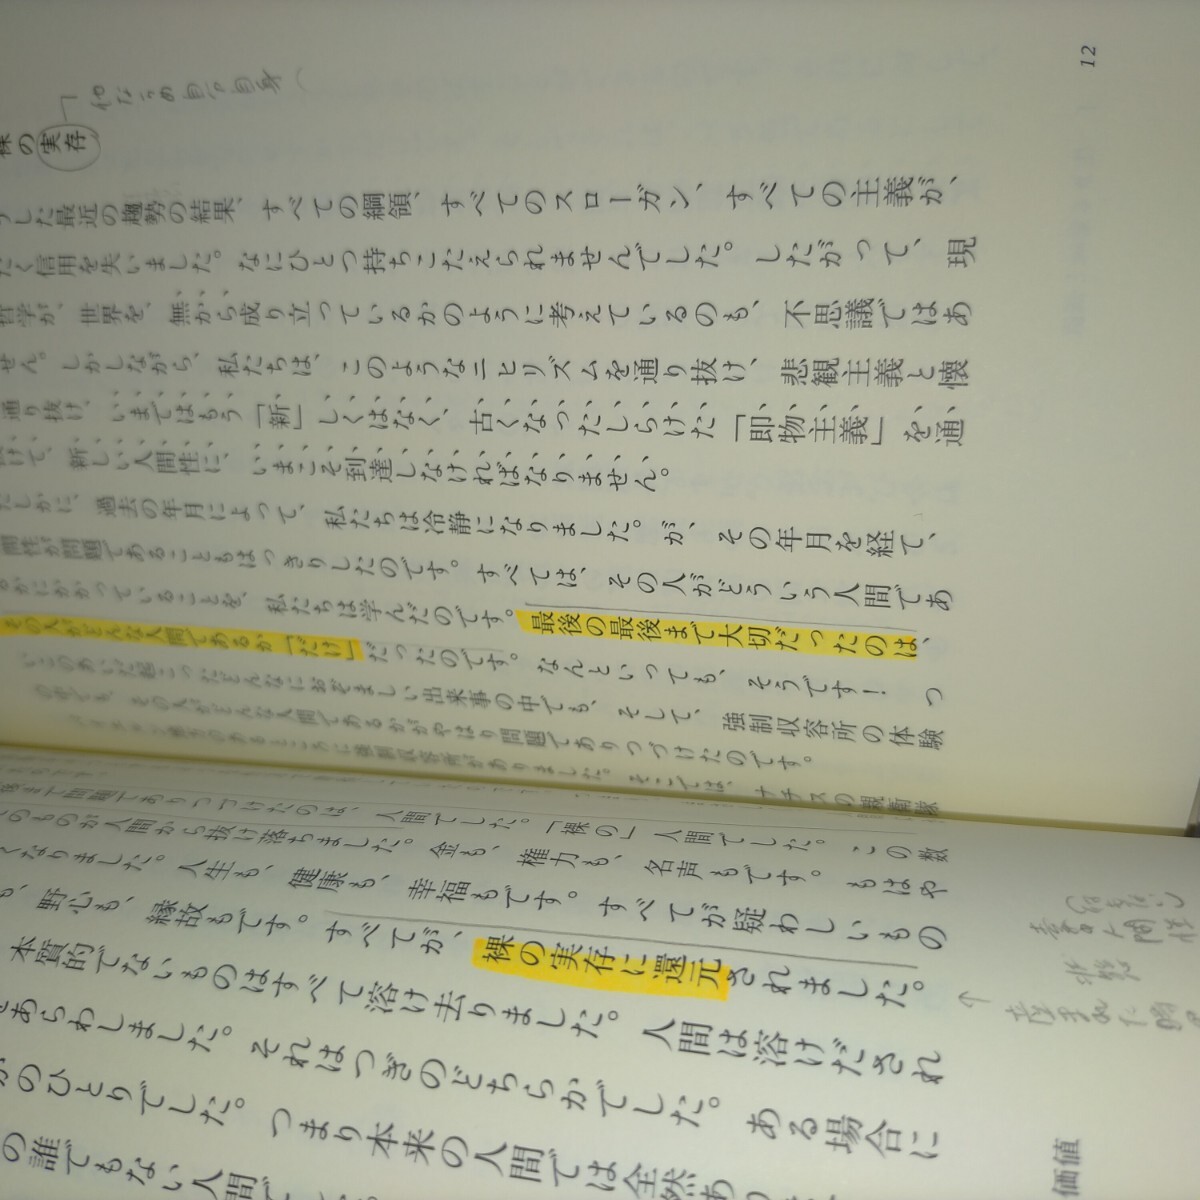 12
裸の実存
した最近の趨勢の結果、すべての綱領、すべてのスローガン、すべての主義が、
たく信用を失いました。なにひとつ持ちこたえられませんでした。したがって、現
哲学が、世界を、無から成り立っているかのように考えているのも、不思議ではあ
せん。しかしながら、私たちは、このようなニヒリズムを通り抜け、悲観主義と懐
通り抜け、いまではもう「新」しくはなく、古くなったしらけた「即物主義」を通
けて、新しい人間性に、いまこそ到達しなければなりません。
たしかに、過去の年月によって、私たちは冷静になりました。が、その年月を経て、
間性が問題であることもはっきりしたのです。すべては、その人がどういう人間であ
るかにかかっていることを、私たちは学んだのです。最後の最後まで大切だったのは、
その人がどんな人間であるか「だけ」だったのです。なんといっても、そうです！ つ
いこのあいだ起こったどんなにおぞましい出来事の中でも、そして、強制収容所の体験
の中でも、その人がどんな人間であるかがやはり問題でありつづけたのです。
あるところに強制収容所がありました。そこでは、ナチスの親衛隊
まで問題でありつづけたのは、人間でした。「裸の」人間でした。この数
てのものが人間から抜け落ちました。金も、権力も、名声もです。もはや
くなりました。人生も、健康も、幸福もです。すべてが疑わしいもの
も、野心も、縁故もです。すべてが、裸の実存に還元されました。
本質的でないものはすべて溶け去りました。人間は溶けだされ
をあらわしました。それはつぎのどちらかでした。ある場合に
かのひとりでした。つまり本来の人間では全然あり
の誰でもない人間で
価値